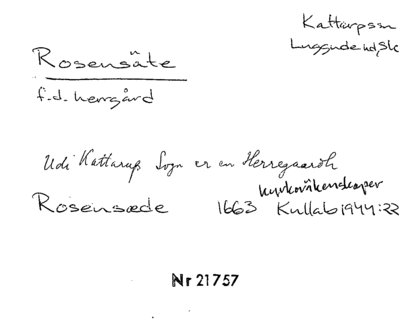 Kattarpssn
Luggude hd, Sk
Rosensäte
f.d. herrgård
Udi Kattarups Sogn er en Herregaardh
kyrkoräkenskaper
Rosensæde 1663 Kullab 1944:22
Nr 21757